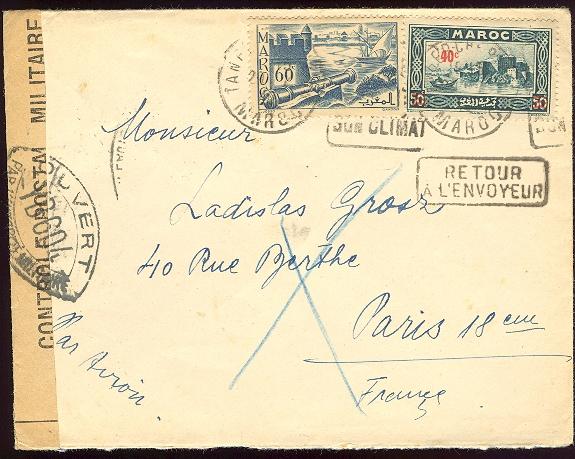 MAROC
60c
المغرب
MAROC
40c
50c 50c
MAROC
MAROC
SON CLIMAT
SON
RETOUR
À L'ENVOYEUR
CONTROLE POSTAL MILITAIRE
OUVERT
Monsieur
Ladislas Gross
40 Rue Berthe
Paris 18eme
France
Par Avion